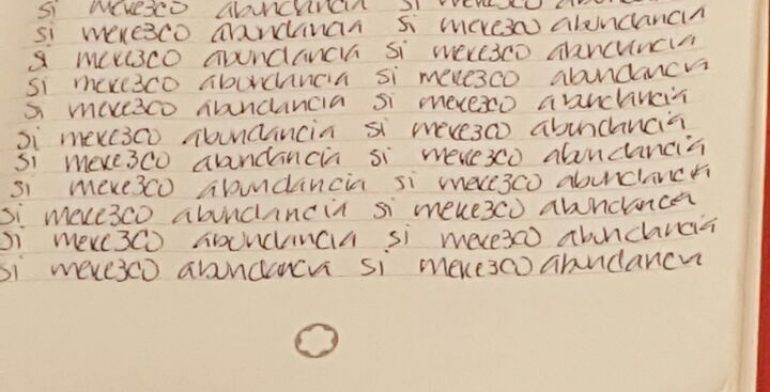 si merezco abundancia si merezco
si merezco abundancia si merezco abundancia
si merezco abundancia si merezco abundancia
si merezco abundancia si merezco abundancia
si merezco abundancia si merezco abundancia
si merezco abundancia si merezco abundancia
si merezco abundancia si merezco abundancia
si merezco abundancia si merezco abundancia
si merezco abundancia si merezco abundancia
si merezco abundancia si merezco abundancia
si merezco abundancia si merezco abundancia